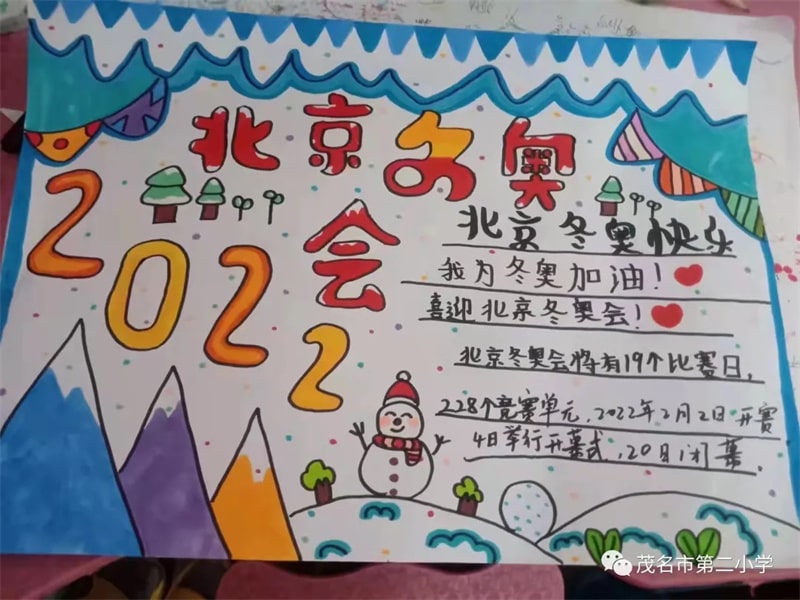 北京冬奥
会
2022
北京冬奥快乐
我为冬奥加油！
喜迎北京冬奥会！
北京冬奥会将有19个比赛日，
228个竞赛单元，2022年2月2日开赛
4日举行开幕式，20日闭幕．
茂名市第二小学